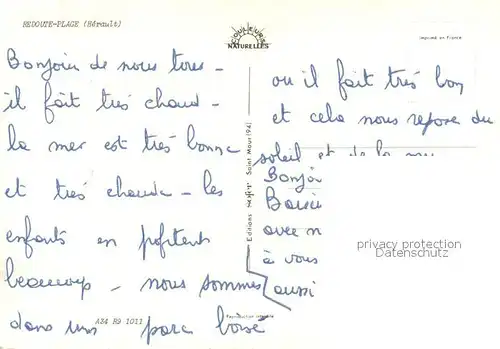 REDOUTE-PLAGE (Hérault)
COULEURS
NATURELLES
Imprimé en France
Bonjour de nous tous -
il fait très chaud -
la mer est très bonne
et très chaude - les
enfants en profitent
beaucoup - nous sommes
dans un parc boisé
où il fait très bon
et cela nous repose du
soleil et de la
Bonjou
Baise
avec n
à vous
aussi
Editions S.E.P.T. Saint Maur (94)
A34 89 1011
Reproduction interdite
privacy protection
Datenschutz